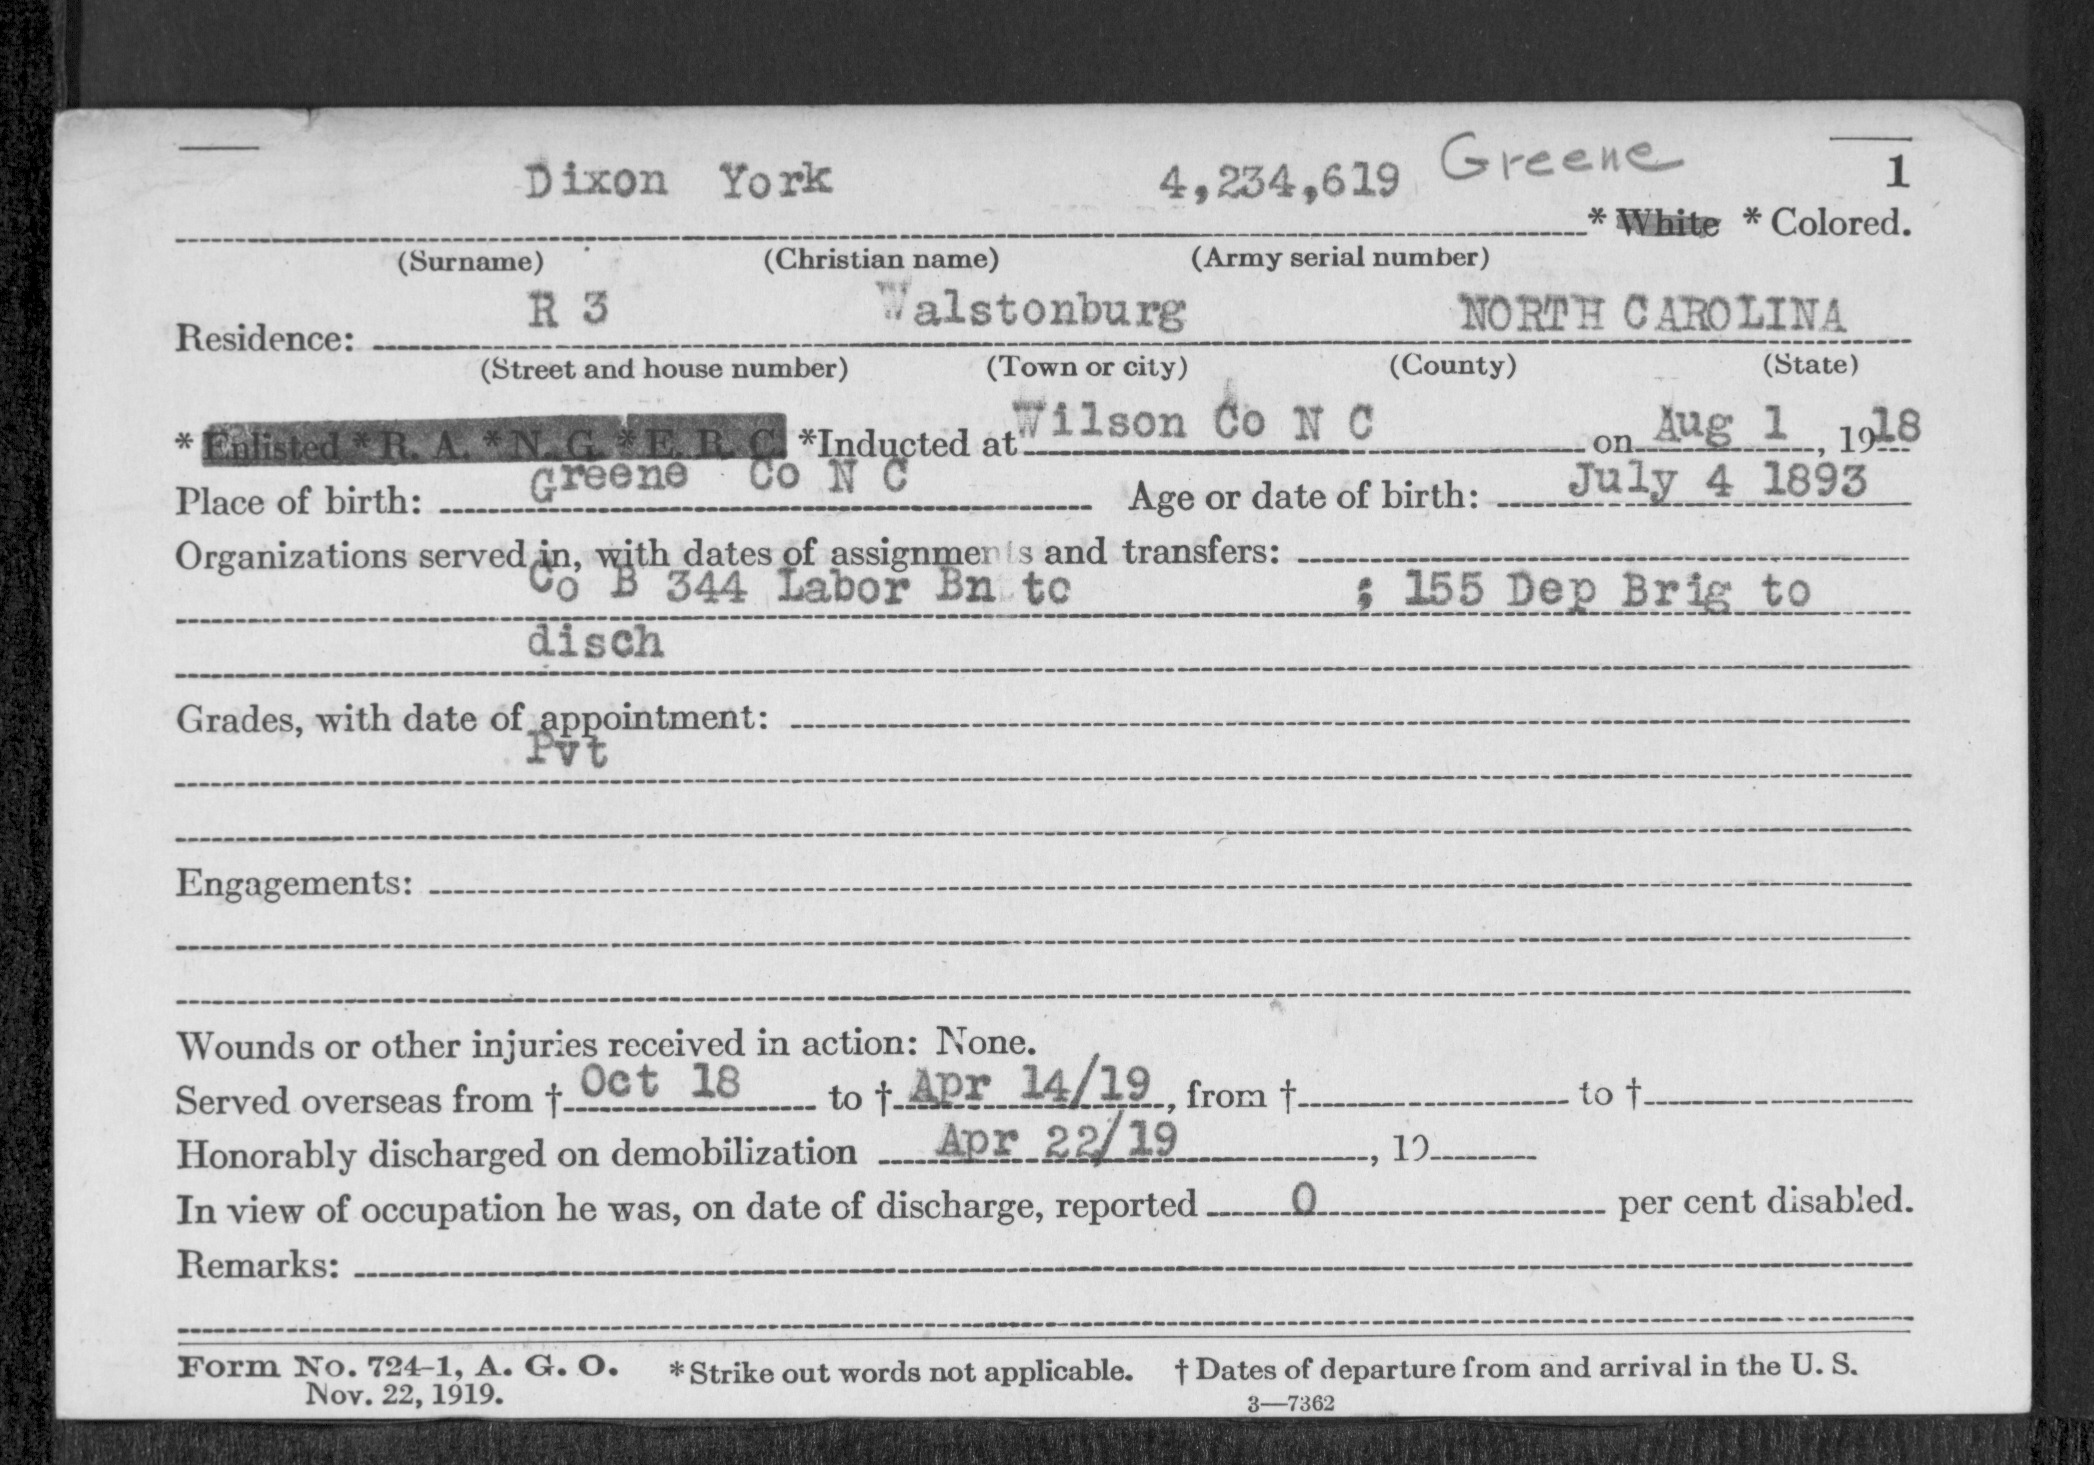 Dixon York 4,234,619 Greene 1
* White * Colored.
(Surname) (Christian name) (Army serial number)
R 3 Walstonburg NORTH CAROLINA
Residence:
(Street and house number) (Town or city) (County) (State)
* Enlisted * R. A. * N. G. * E. R. C. *Inducted at Wilson Co N C on Aug 1, 1918
Place of birth: Greene Co N C Age or date of birth: July 4 1893
Organizations served in, with dates of assignments and transfers:
Co B 344 Labor Bn to ; 155 Dep Brig to
disch
Grades, with date of appointment:
Pvt
Engagements:
Wounds or other injuries received in action: None.
Served overseas from † Oct 18 to † Apr 14/19, from † to †
Honorably discharged on demobilization Apr 22/19, 19
In view of occupation he was, on date of discharge, reported 0 per cent disabled.
Remarks:
Form No. 724-1, A. G. O. * Strike out words not applicable. † Dates of departure from and arrival in the U. S.
Nov. 22, 1919. 3—7362